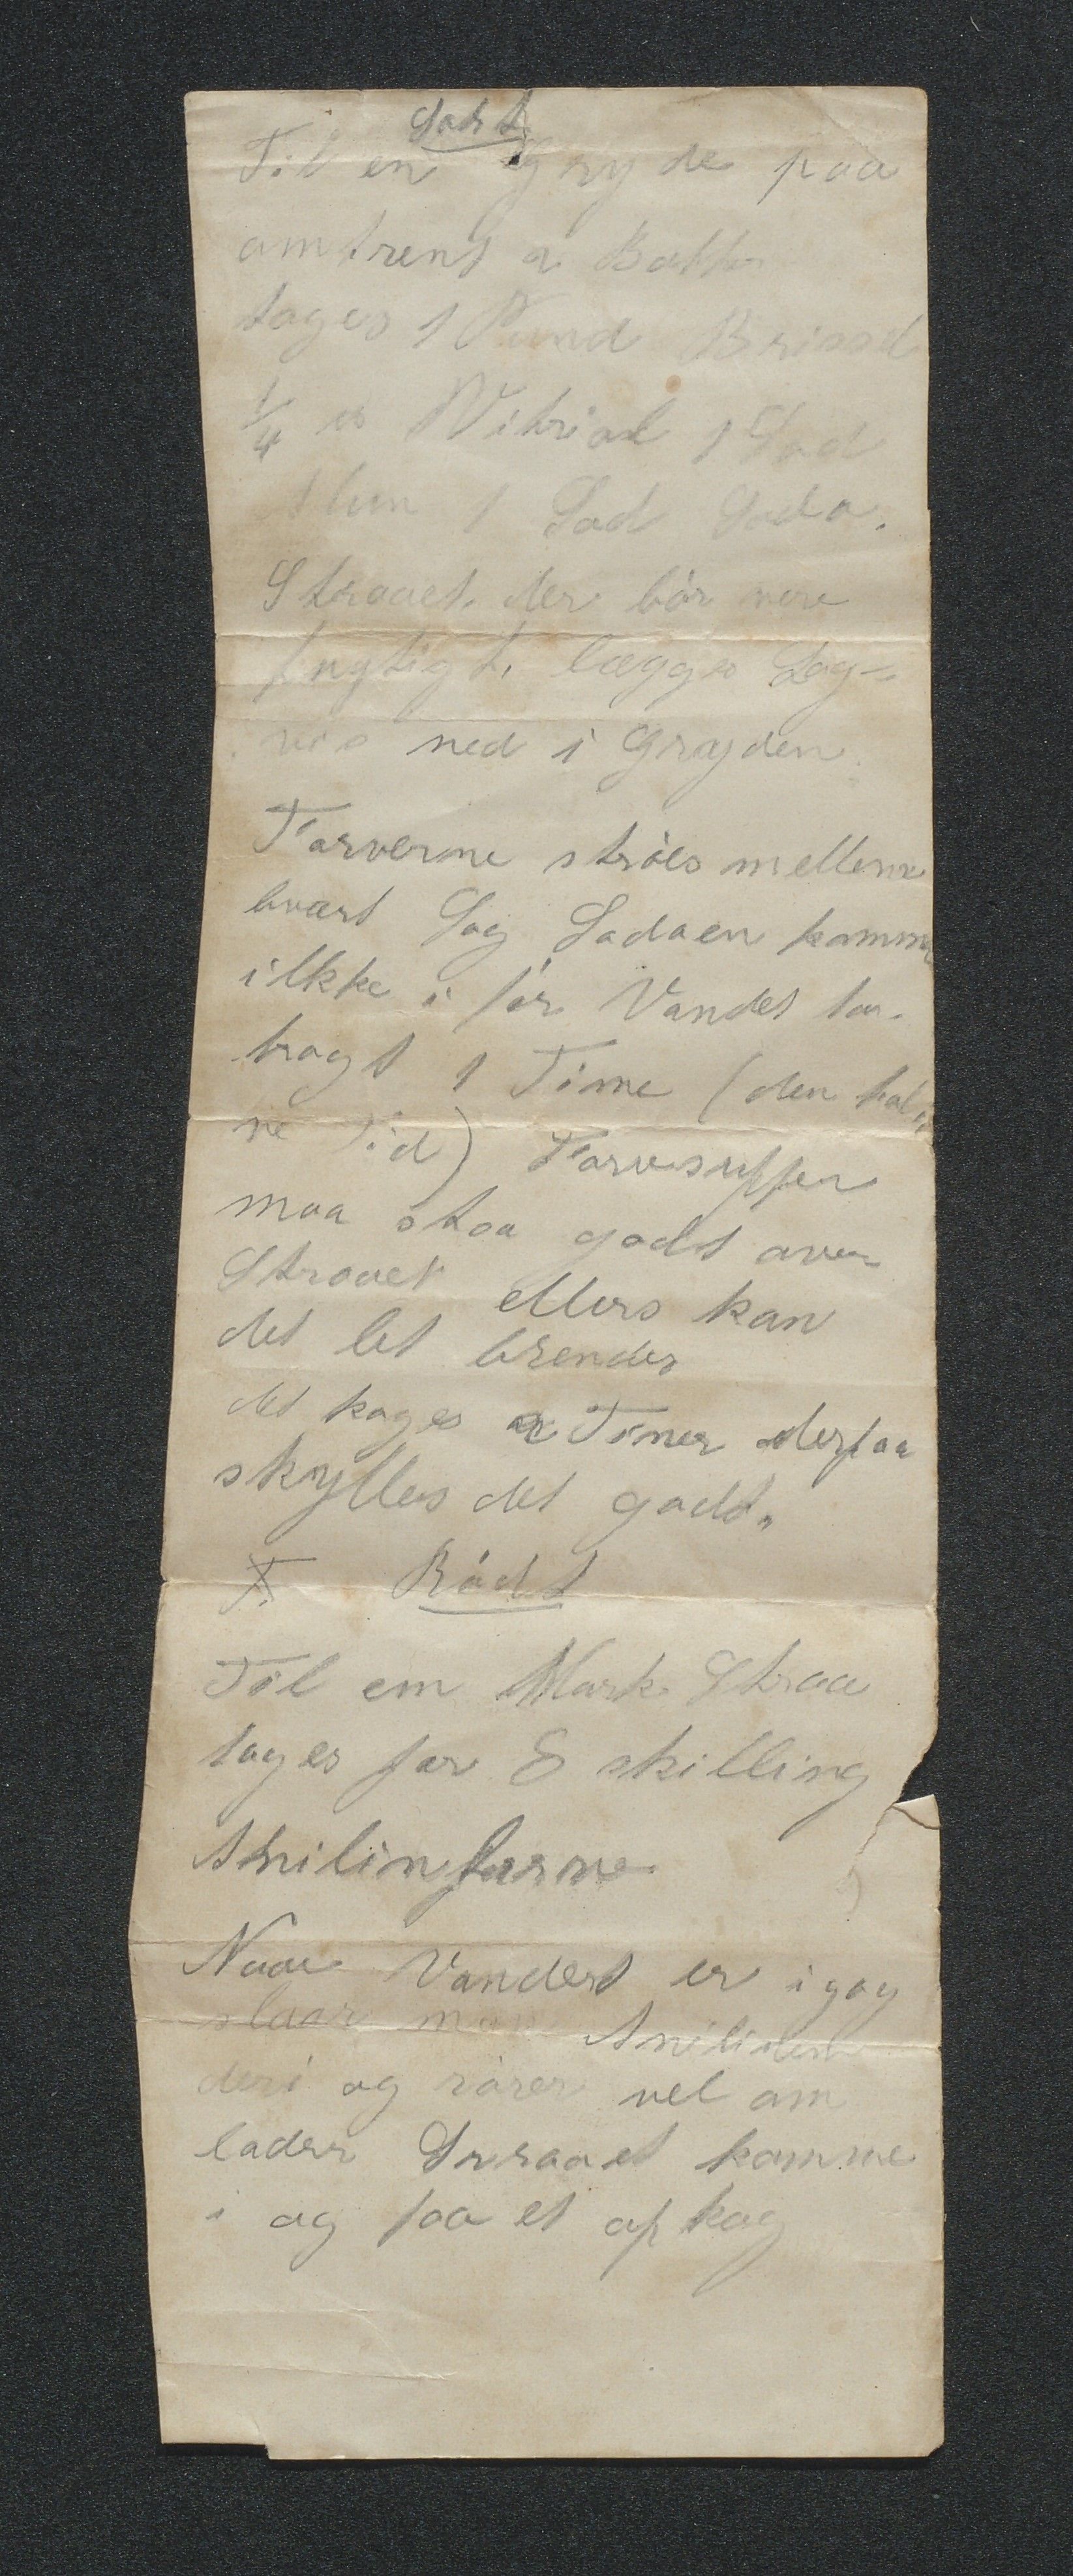 Sort
Til en Gryde paa
omtrent 2 Bøtter
tages 1 Pund Brissel
1/4 Vitriol 1 Lod
Alun 1 Lod Soda.
Straaet. der bør være
fugtigt. lægges Lag=
vis ned i Gryden.
Farverne strøes mellem
hvert Lag Sodaen komme
ikke i før Vandet har
kogt 1 Time (den hal
ve Tid) Farvesuppen
maa staa godt over
Straaet ellers kan
det let brendes
det koges 2 Timer derpaa
skylles det godt.
Rødt
Til em Mark Straa
tages for 8 skilling
Anilinfarve
Naar Vandet er i gog
slaar man
deri og rører vel om
lader Straaet komme
i og faa et opkog